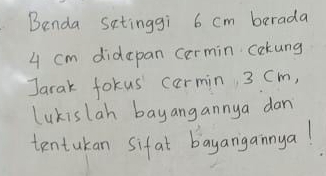 Benda setinggi 6 cm berada
4 cm didepan cermin cekung
Jarak fokus cermin 3 cm,
lukislah bayangannya dan
tentukan sifat bayangannya!